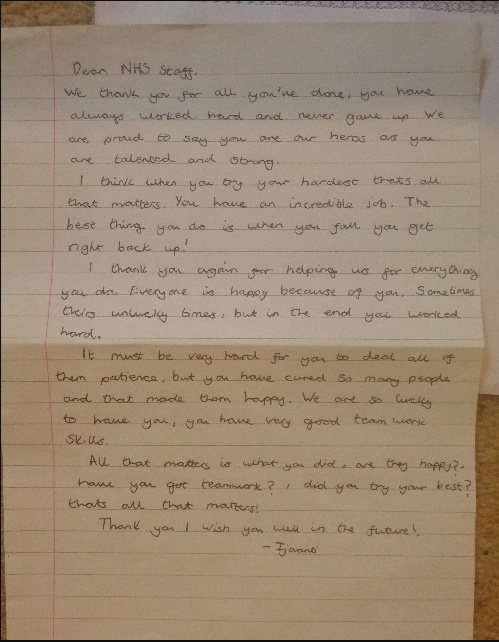 Dear, NHS Staff,
We thank you for all you've done, you have
always worked hard and never gave up. We
are proud to say you are our heros as you
are talented and strong.
I think when you try your hardest thats all
that matters. You have an incredible job. The
best thing you do is when you fall you get
right back up!
I thank you again for helping us for everything
you do. Everyone is happy because of you. Sometimes
theirs unlucky times, but in the end you worked
hard.
It must be very hard for you to deal all of
them patience, but you have cured so many people
and that made them happy. We are so lucky
to have you, you have very good team work
skills.
All that matters is what you did. are they happy?,
have you got teamwork?, did you try your best?
thats all that matters!
Thank you I wish you well in the future!,